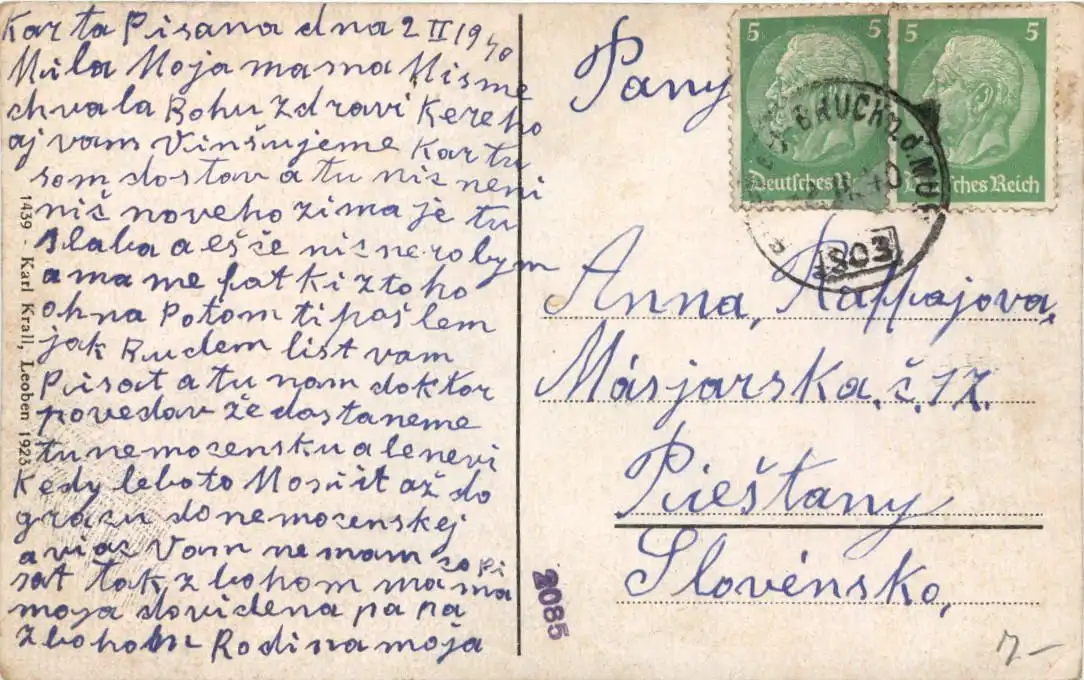 Karta Pisana dna 2 II 1940
Mila Moja mama Mi sme
chvala Bohu zdravi Kereho
aj vam Vinšujeme Kartu
som dostav a tu nis neni
niš noveho zima je tu
slaba a ešče nis nerobym
a mame fatki z toho
ohna Potom ti pašlem
jak Budem list vam
Pisat a tu nam doktor
povedav že dostaneme
tu nemocensku a lenevi
Kedy lebo to Mosi it až do
gracu do nemocenskej
a viac Vam nemam co pi
sat tak z bohom mama
moja dovidena pa pa
z bohom Rodina moja
1439 - Karl Krall, Leoben 1923
2085
5 5
5 5
Deutsches Reich
BRUCK a. d. MUR
SO3
Pany
Anna, Rappajova,
Másjarska č. 17.
Pieštany
Slovénsko,
7-